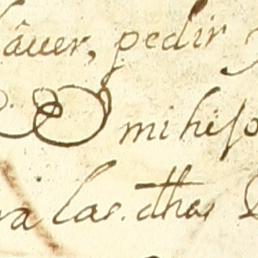 hâuer, pedir y
mi hijo
ra las. dhas